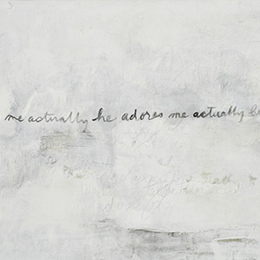 me actually he adores me actually